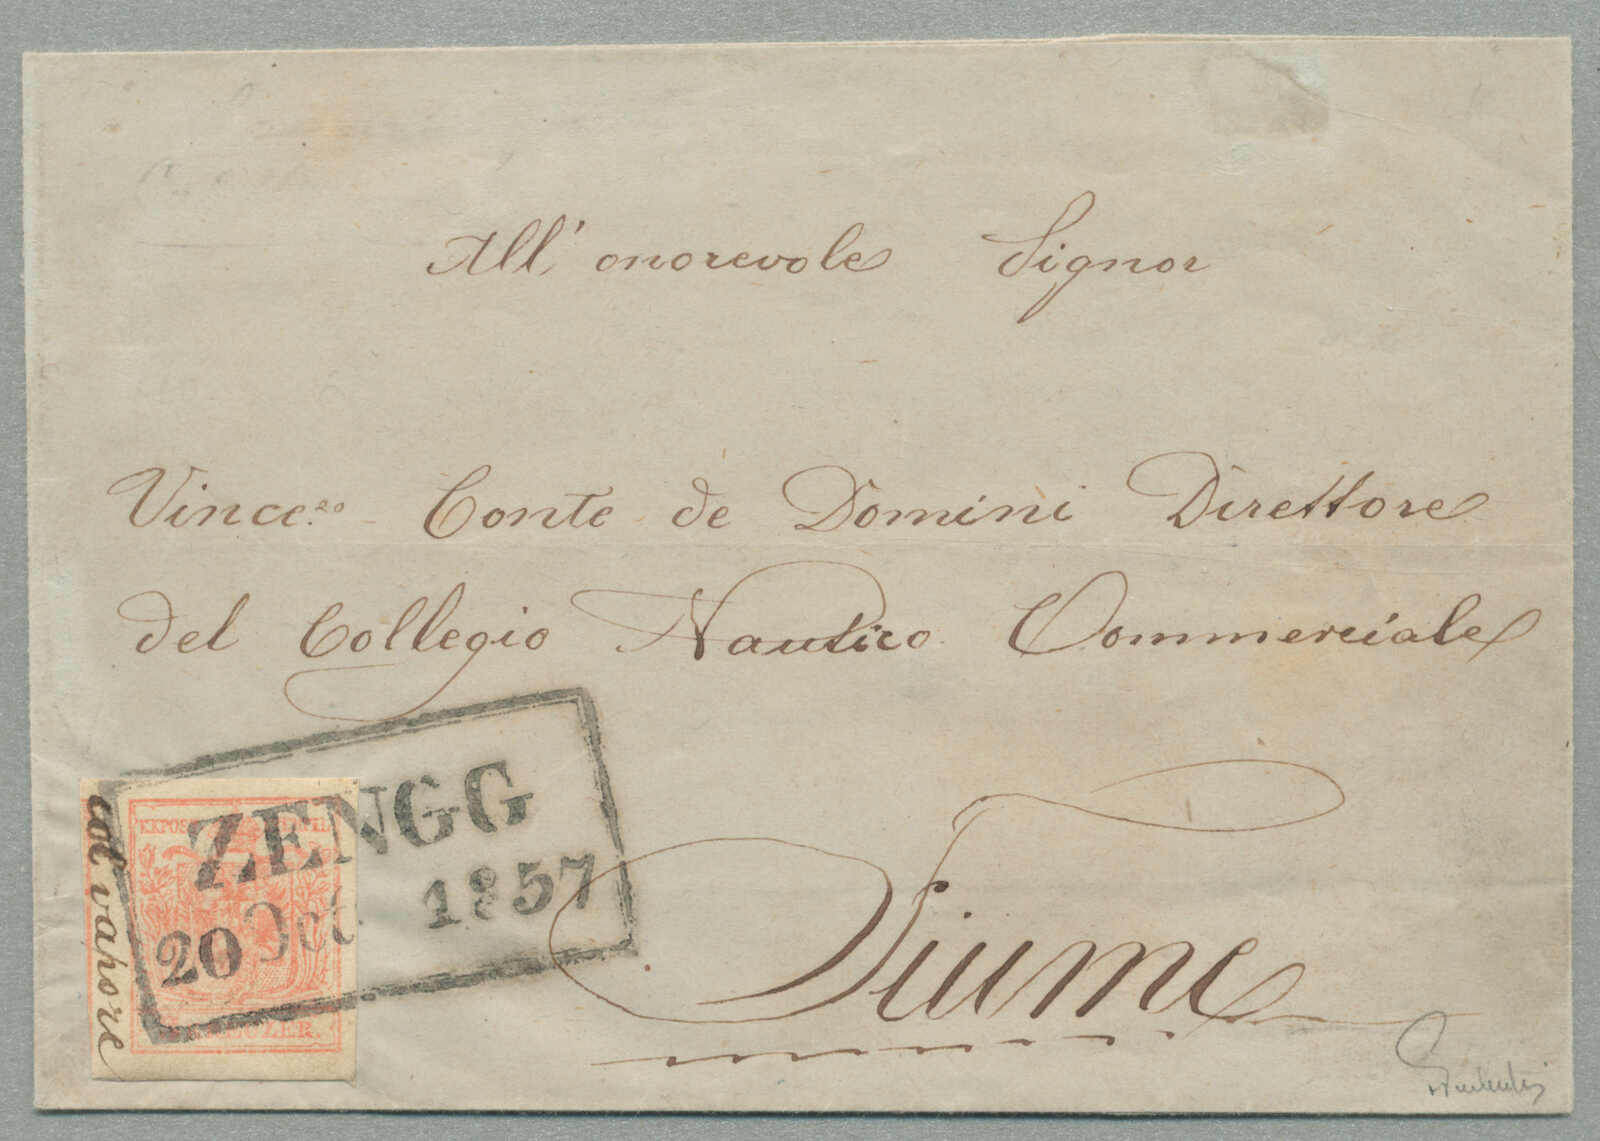 All' onorevole Signor
Vince.zo Conte de Domini Direttore
del Collegio Nautico Commerciale
Fiume
ZENGG
20 Oct 1857
col vapore
KKPOST STEMPEL
KREUZER.